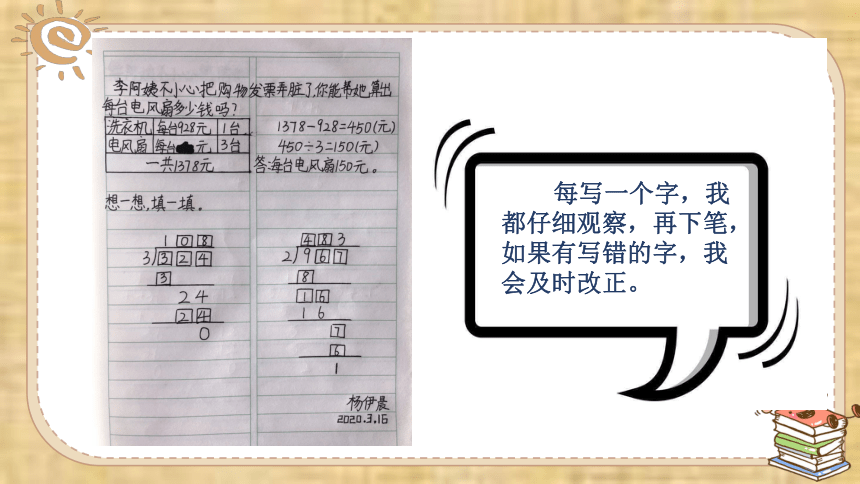 李阿姨不小心把购物发票弄脏了,你能帮她算出
每台电风扇多少钱吗?
洗衣机 每台928元 1台
电风扇 每台 元 3台
一共1378元
1378-928=450(元)
450÷3=150(元)
答:每台电风扇150元。
想一想,填一填。
1 0 8
3)3 2 4
3
2 4
2 4
0
4 8 3
2)9 6 7
8
1 6
1 6
7
6
1
杨伊晨
2020.3.16
每写一个字，我
都仔细观察，再下笔，
如果有写错的字，我
会及时改正。